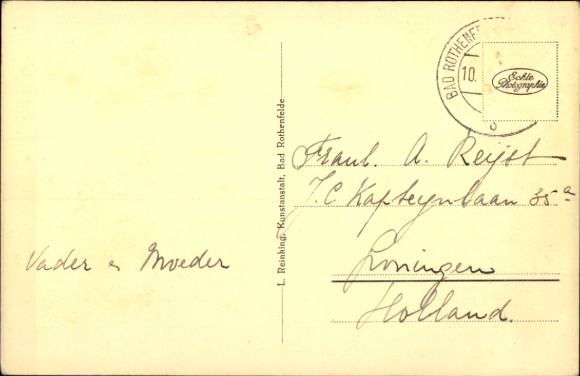 Vader en Moeder
L. Reinking, Kunstanstalt, Bad Rothenfelde
BAD ROTHENF
10.
Echte
Photographie
Fraul. A. Reijst
J.C. Kapteynlaan 35a
Groningen
Holland.